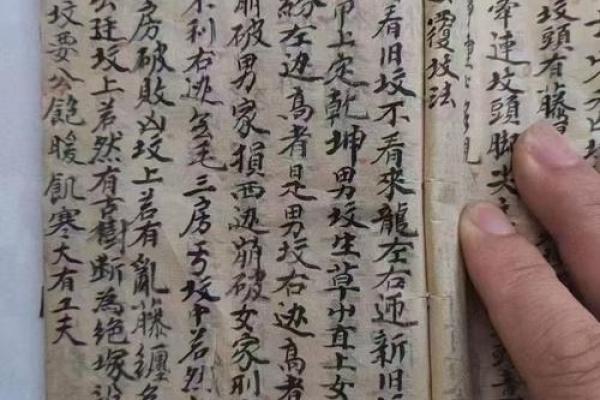 坟頭有藤
牽連坟頭脚尖
覆坟法
看旧坟不看來龍左右迎新旧
甲上定乾坤男坟生草小直上女
緣左边高者是男坟右边高者
崩破男家損西边崩破女家刑
不利右边毛三房亏坟中若然
房破敗凶坟上若有亂藤纏
公廷坟上若然有古樹断為絕塚
坟要公飽暖飢寒大有工夫